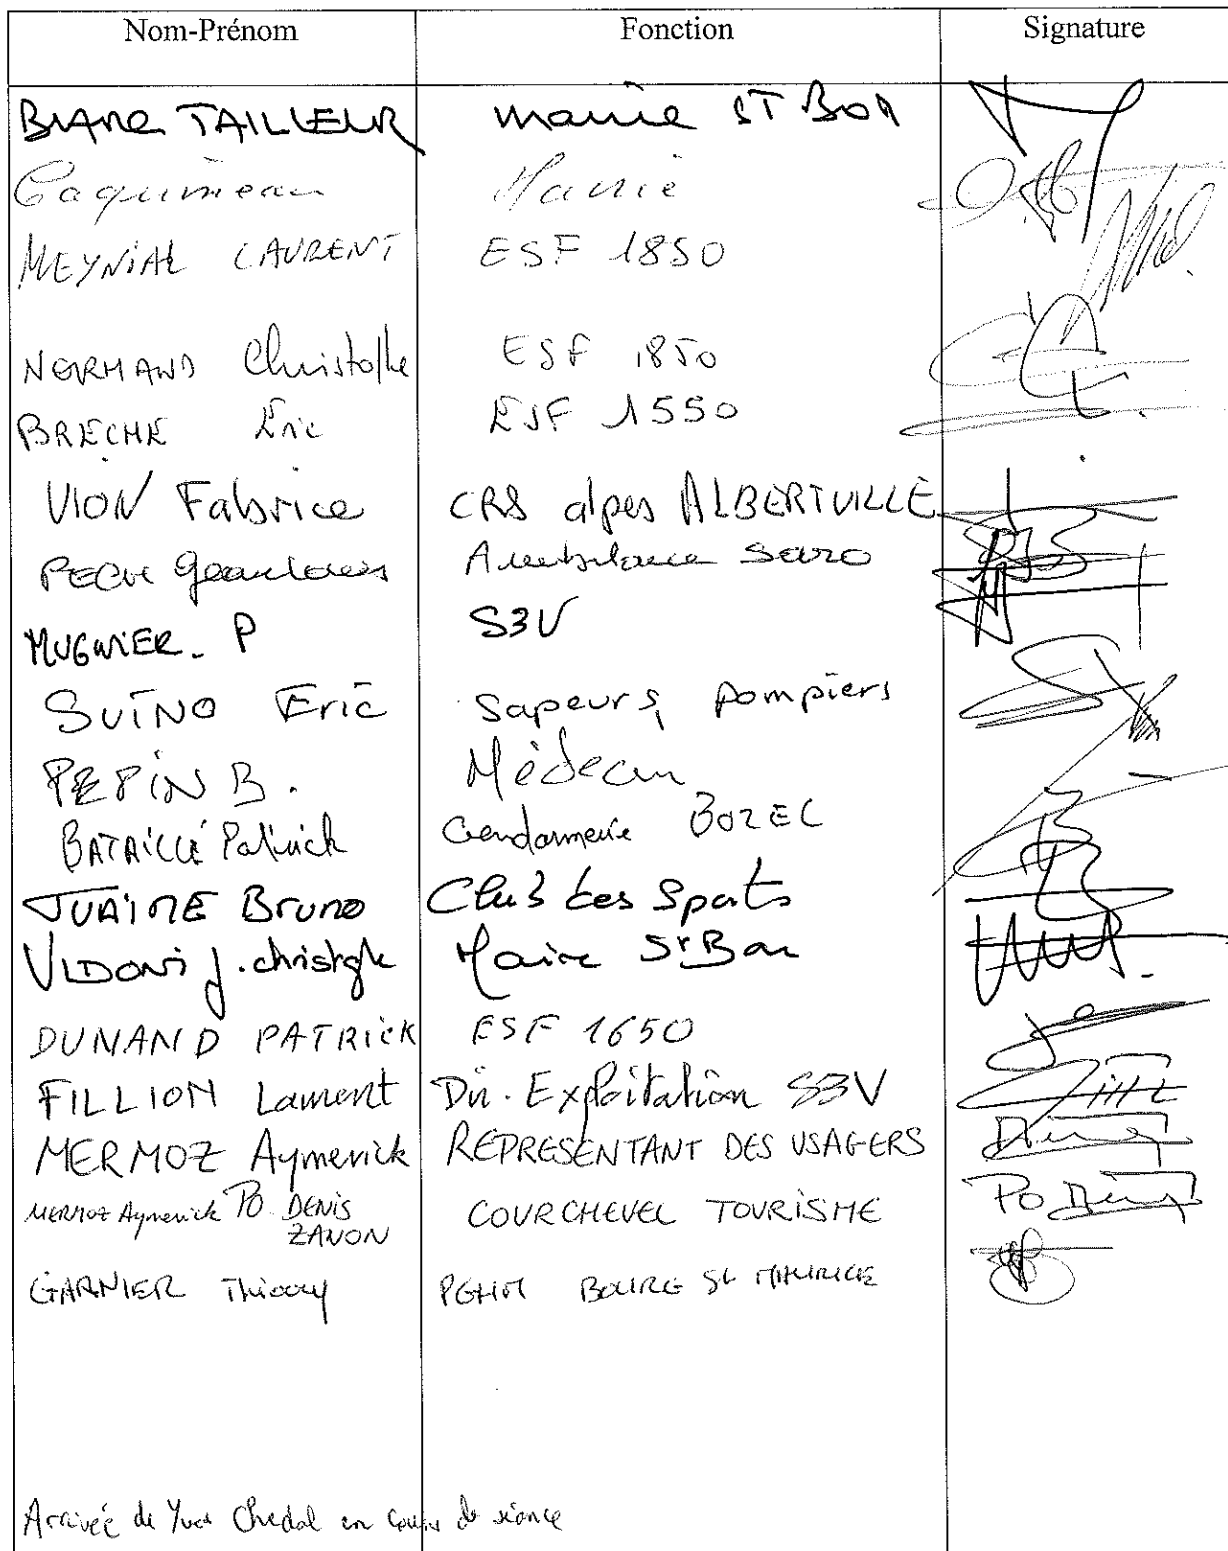 Nom-Prénom Fonction Signature
BLANC TAILLEUR Mairie ST BON
Caquineau Mairie
MEYNIAL LAURENT ESF 1850
NORMAND Christophe ESF 1850
BRECHE Éric ESF 1550
VION Fabrice CRS alpes ALBERTVILLE
Ambulance
MUGNIER. P S3V
SUINO Eric Sapeurs pompiers
PEPIN B. Médecin
BATAILLE Patrick Gendarmerie BOZEL
JUAIRE Bruno Club des Sports
VIDONI J. christophe Mairie St Bon
DUNAND PATRICK ESF 1650
FILLION Laurent Dir. Exploitation S3V
MERMOZ Aymerick REPRESENTANT DES USAGERS
MERMOZ Aymerick PO DENIS COURCHEVEL TOURISME PO
ZANON
GARNIER Thierry PGHM BOURG St MAURICE
Arrivée de Yves Chedal en cours de séance